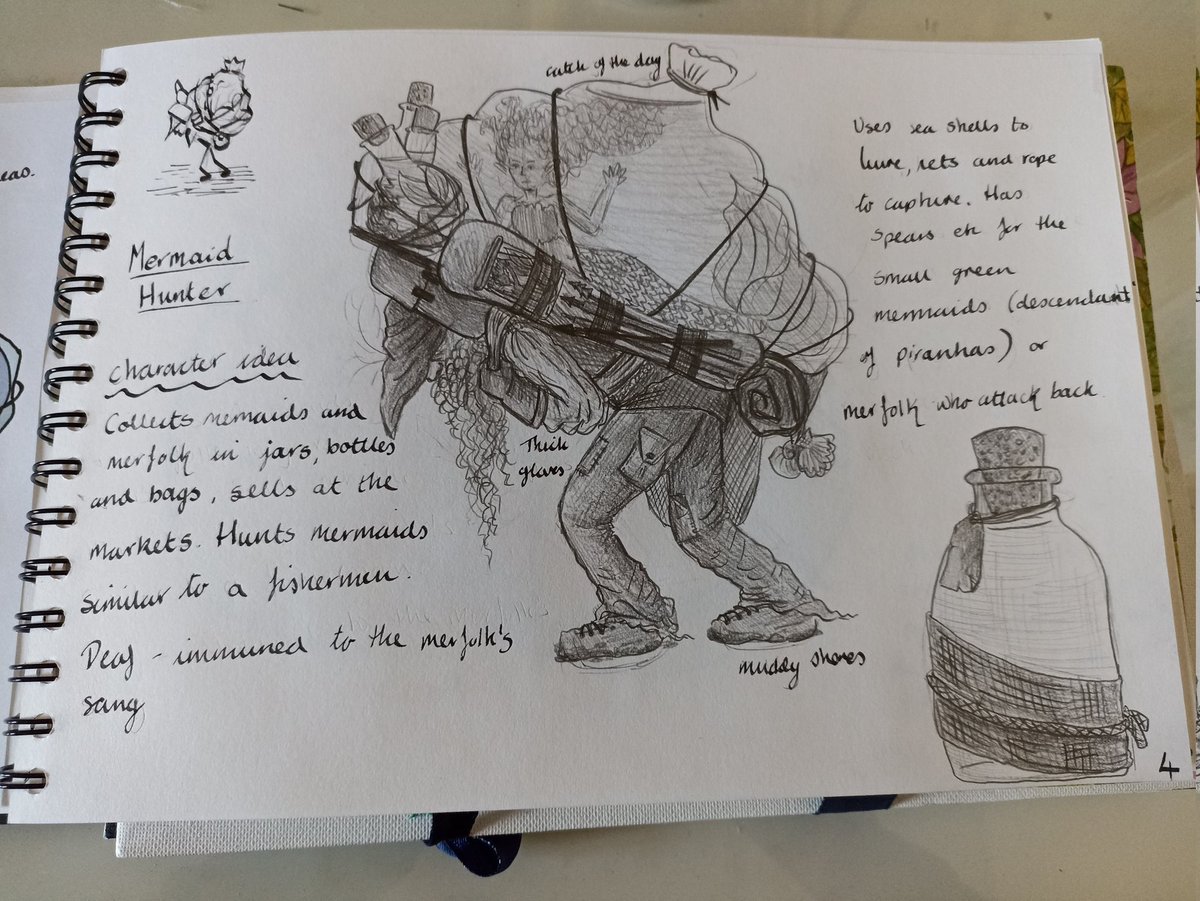 eas.
Mermaid
Hunter
character idea
Collects memaids and
merfolk in jars, bottles
and bags, sells at the
markets. Hunts mermaids
similar to a fishermen.
Deaf - immuned to the merfolk's
sang
catch of the day
Thick
gloves
muddy shoes
Uses sea shells to
lure, nets and rope
to capture. Has
spears etc for the
small green
mermaids (descendant
of piranhas) or
merfolk who attack back.
4